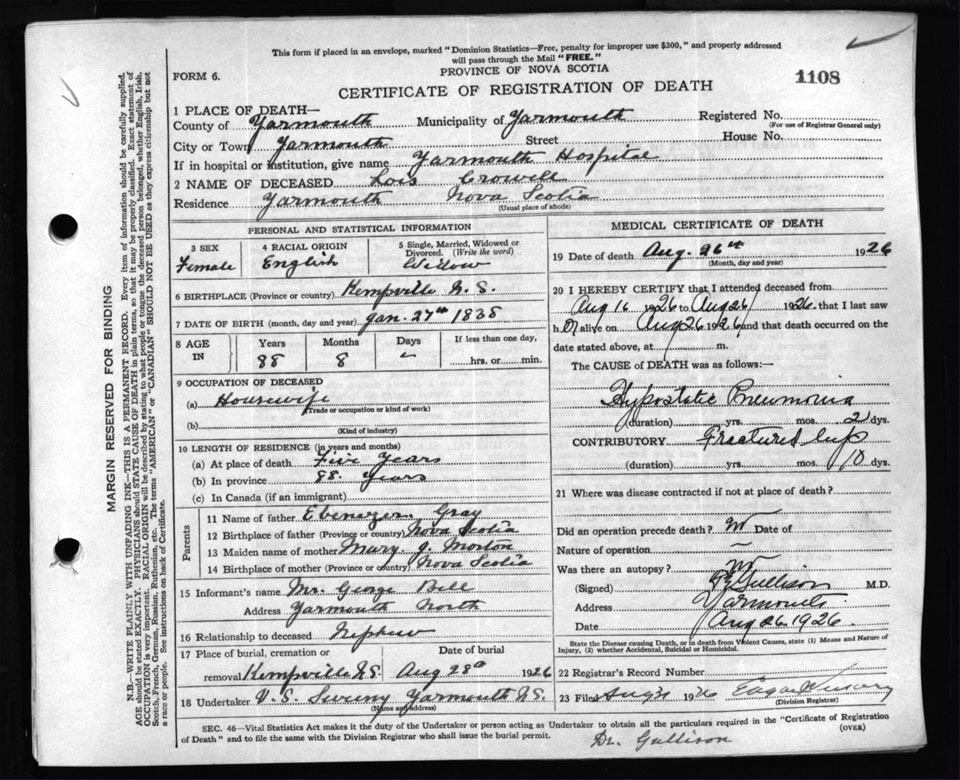 This form if placed in an envelope, marked "Dominion Statistics—Free, penalty for improper use $300," and properly addressed
will pass through the Mail "FREE."
PROVINCE OF NOVA SCOTIA
FORM 6.
1108
CERTIFICATE OF REGISTRATION OF DEATH
1 PLACE OF DEATH—
County of Yarmouth Municipality of Yarmouth Registered No.
(For use of Registrar General only)
City or Town Yarmouth Street House No.
If in hospital or institution, give name Yarmouth Hospital
2 NAME OF DECEASED Lois Crowell
Residence Yarmouth Nova Scotia
(Usual place of abode)
PERSONAL AND STATISTICAL INFORMATION
3 SEX 4 RACIAL ORIGIN 5 Single, Married, Widowed or
Divorced. (Write the word)
Female English Widow
6 BIRTHPLACE (Province or country) Kempville N.S.
7 DATE OF BIRTH (month, day and year) Jan. 27th 1838
8 AGE IN Years Months Days If less than one day,
88 8 – hrs. or min.
9 OCCUPATION OF DECEASED
(a) Housewife
(Trade or occupation or kind of work)
(b)
(Kind of industry)
10 LENGTH OF RESIDENCE (in years and months)
(a) At place of death Five Years
(b) In province 88 Years
(c) In Canada (if an immigrant)
Parents
11 Name of father Ebenezer Gray
12 Birthplace of father (Province or country) Nova Scotia
13 Maiden name of mother Mary J. Morton
14 Birthplace of mother (Province or country) Nova Scotia
15 Informant's name Mr. George Bell
Address Yarmouth North
16 Relationship to deceased Nephew
17 Place of burial, cremation or Date of burial
removal Kempville N.S. Aug 28th 1926
18 Undertaker V. S. Sweeny Yarmouth N.S.
(Name and address)
MEDICAL CERTIFICATE OF DEATH
19 Date of death Aug. 26th 1926
(Month, day and year)
20 I HEREBY CERTIFY that I attended deceased from
Aug 16 1926 to Aug 26 1926. that I last saw
her alive on Aug 26 1926 and that death occurred on the
date stated above, at m.
The CAUSE of DEATH was as follows:—
Hypostatic Pneumonia
(duration) yrs. mos. 2 dys.
CONTRIBUTORY Fractured hip
(duration) yrs. mos. 10 dys.
21 Where was disease contracted if not at place of death?
Did an operation precede death? No Date of
Nature of operation –
Was there an autopsy? No
(Signed) Gullison M.D.
Address Yarmouth
Date Aug 26 1926.
State the Disease causing Death, or in death from Violent Causes, state (1) Means and Nature of
Injury, (2) whether Accidental, Suicidal or Homicidal.
22 Registrar's Record Number
23 Filed Aug 1926
(Division Registrar)
SEC. 46—Vital Statistics Act makes it the duty of the Undertaker or person acting as Undertaker to obtain all the particulars required in the "Certificate of Registration
of Death" and to file the same with the Division Registrar who shall issue the burial permit.
(OVER)
Dr. Gullison
MARGIN RESERVED FOR BINDING
N.B.—WRITE PLAINLY WITH UNFADING INK—THIS IS A PERMANENT RECORD. Every item of information should be carefully supplied.
AGE should be stated EXACTLY. PHYSICIANS should STATE CAUSE OF DEATH in plain terms, so that it may be properly classified. Exact statement of
OCCUPATION is very important. RACIAL ORIGIN will be described by stating to what people or tongue the deceased person belonged, whether English, Irish,
Scotch, French, German, Russian, Ruthenian, etc. The terms "AMERICAN" or "CANADIAN" SHOULD NOT BE USED as they express citizenship but not
a race or people. See instructions on back of Certificate.